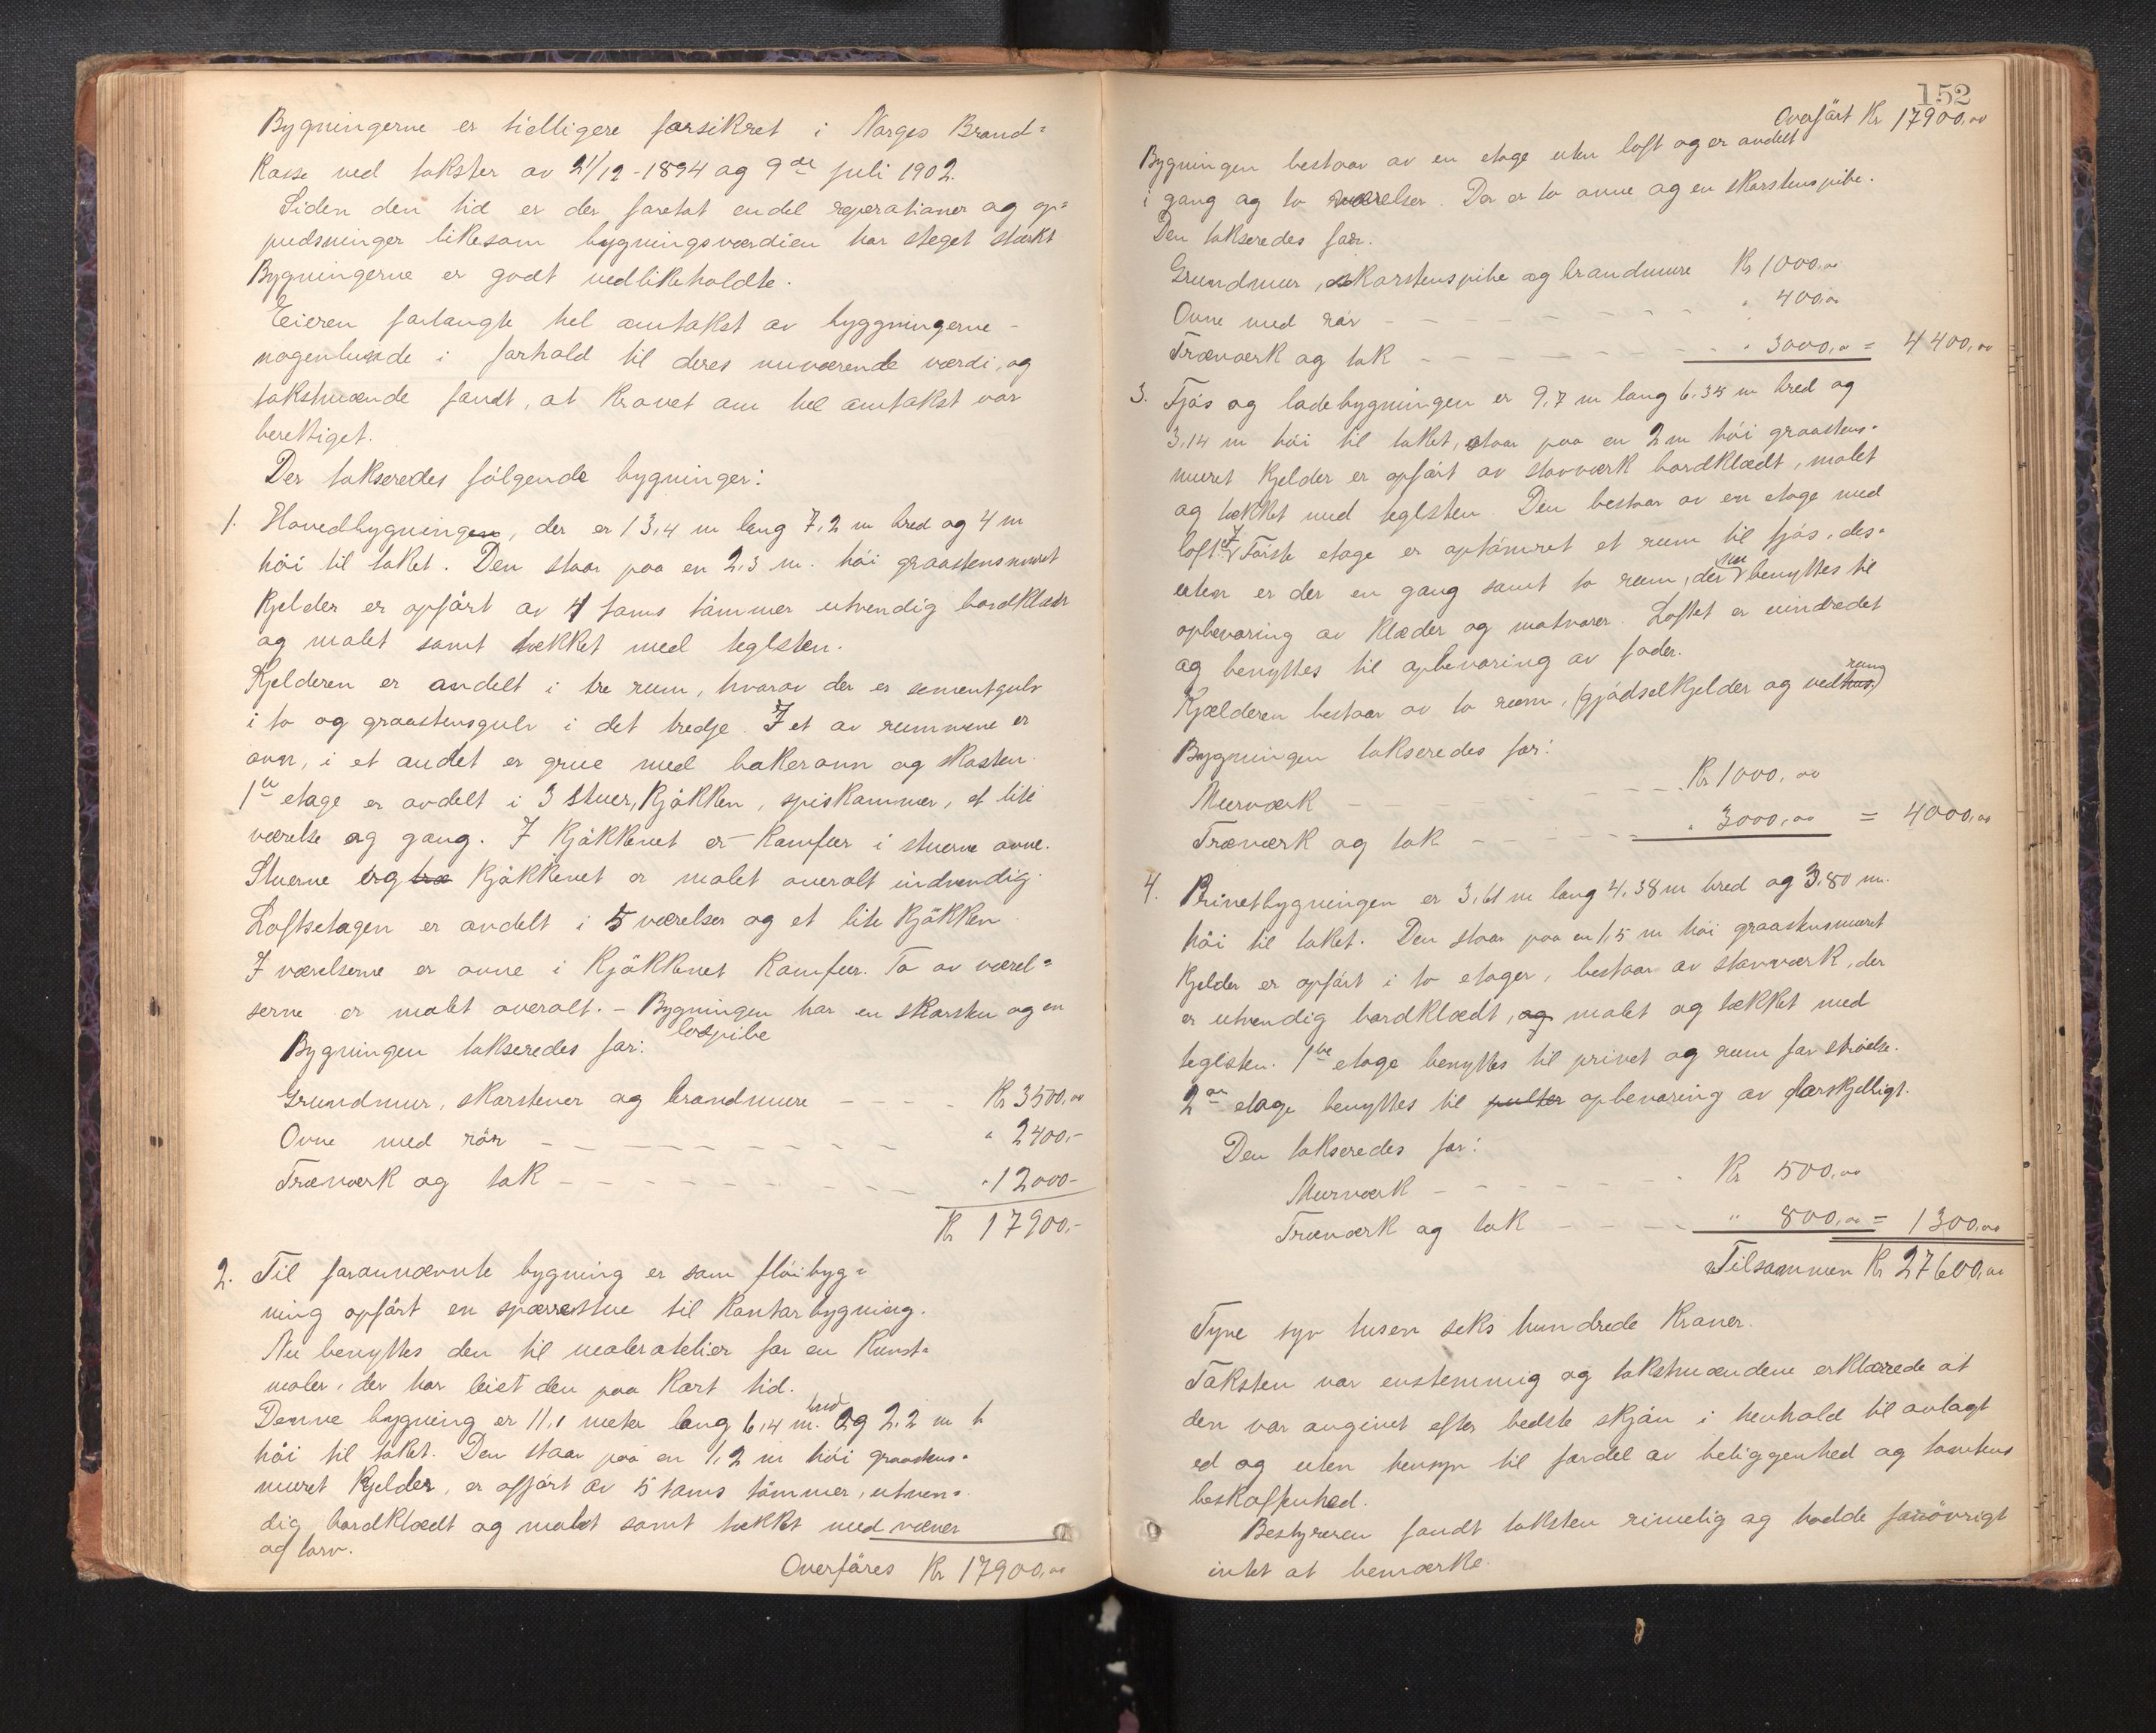 Bygningerne er tidligere forsikret i Norges Brand=
kasse ved takster av 21/12-1894 og 9de juli 1902.
Siden den tid er der foretat endel reperationer og op=
pudsninger likesom bygningsværdien har steget stærkt
Bygningerne er godt vedlikeholdte.
Eieren forlangte hel omtakst av byggningerne -
nogenlunde i forhold til deres nuværende værdi, og
takstmænde fandt, at kravet om hel omtakst var
berettiget.
Der takseredes følgende bygninger:
1. Hovedbygningen, der er 13,4 m lang 7,2 m bred og 4 m
høi til taket. Den staar paa en 2,3 m. høi graastensmuret
kjelder er opført av 4 toms tømmer utvendig bordklædt
og malet samt tækket med teglsten.
Kjelderen er avdelt i tre rum, hvorav der er sementgulv
i to og graastensgulv i det tredje. I et av rummene er
ovn, i et andet er grue med bakerovn og skorsten.
1ste etage er avdelt i 3 stuer, kjøkken, spiskammer, et lite
værelse og gang. I kjøkkenet er komfur i stuerne ovne.
Stuerne og tre kjøkkenet er malet overalt indvendig.
Loftsetagen er avdelt i 5 værelser og et lite kjøkken
I værelserne er ovne i kjøkkenet komfur. To av værel=
serne er malet overalt. - Bygningen har en skorsten og en
løspibe
Bygningen takseredes for:
Grundmur, skorstener og brandmure - - - - Kr 3500,00
Ovne med rør - - - - - - - - " 2400,-
Træverk og tak - - - - - - - - " 12000-
Kr 17900,-
2. Tilforannævnte bygning er som fløibyg=
ning opført en sperrestue til kontorbygning.
Nu benyttes den til maleratelier for en kunst=
maler, der har leiet den paa kort tid.
Denne bygning er 11,1 meter lang 6,4 m. bred og 2,2 m h
høi til taket. Den staar paa en 1,2 m høi graastens=
muret kjelder, er opført av 5 toms tømmer, utven=
dig bordklædt og malet samt tækket med næver
og torv.
Overføres Kr 17900,00
152
Overført Kr 17900,00
Bygningen bestaar av en etage uten loft og er avdelt
i gang og to værelser. Der er to ovne og en skorstenspibe.
Den takseredes for.
Grundmur, skorstenspibe og brandmure Kr 1000,00
Ovne med rør - - - - - - - - " 400,00
Træverk og tak - - - - - - - - " 3000,00 = 4400,00
3. Fjøs og ladebygningen er 9,7 m lang 6,35 m bred og
3,14 m høi til taket, staar paa en 2 m høi graastens=
muret kjelder er opført av stavværk bordklædt, malet
og tækket med teglsten. Den bestaar av en etage med
loft. I første etage er optømret et rum til fjøs, des=
uten er der en gang samt to rum, der nu benyttes til
opbevaring av klæder og matvarer. Loftet er uindredet
og benyttes til opbevaring av foder.
Kjælderen bestaar av to rum, (gjødselkjelder og vedhus rum)
Bygningen takseredes for:
Murværk - - - - - - - - Kr 1000,00
Træværk og tak - - - - - " 3000,00 = 4000,00
4. Privetbygningen er 3,61 m lang 4,38 m bred og 3,80 m.
høi til taket. Den staar paa en 1,5 m høi graastensmuret
kjelder er opført i to etager, bestaar av stavværk, der
er utvendig bordklædt, og malet og tækket med
teglsten. 1ste etage benyttes til privet og rum for strøelse.
2den etage benyttes til pulter opbevaring av forskjelligt.
Den takseredes for:
Murværk - - - - - - - Kr 500,00
Træværk og tak - - - - " 800,00 = 1300,00
Tilsammen Kr 27600,00
Tyve syv tusen seks hundrede Kroner.
Taksten var enstemmig og takstmændene erklærede at
den var angivet efter bedste skjøn i henhold til avlagt
ed og uten hensyn til fordel av beliggenhed og tomtens
beskaffenhed.
Bestyreren fandt taksten rimelig og hadde forøvrigt
intet at bemærke.